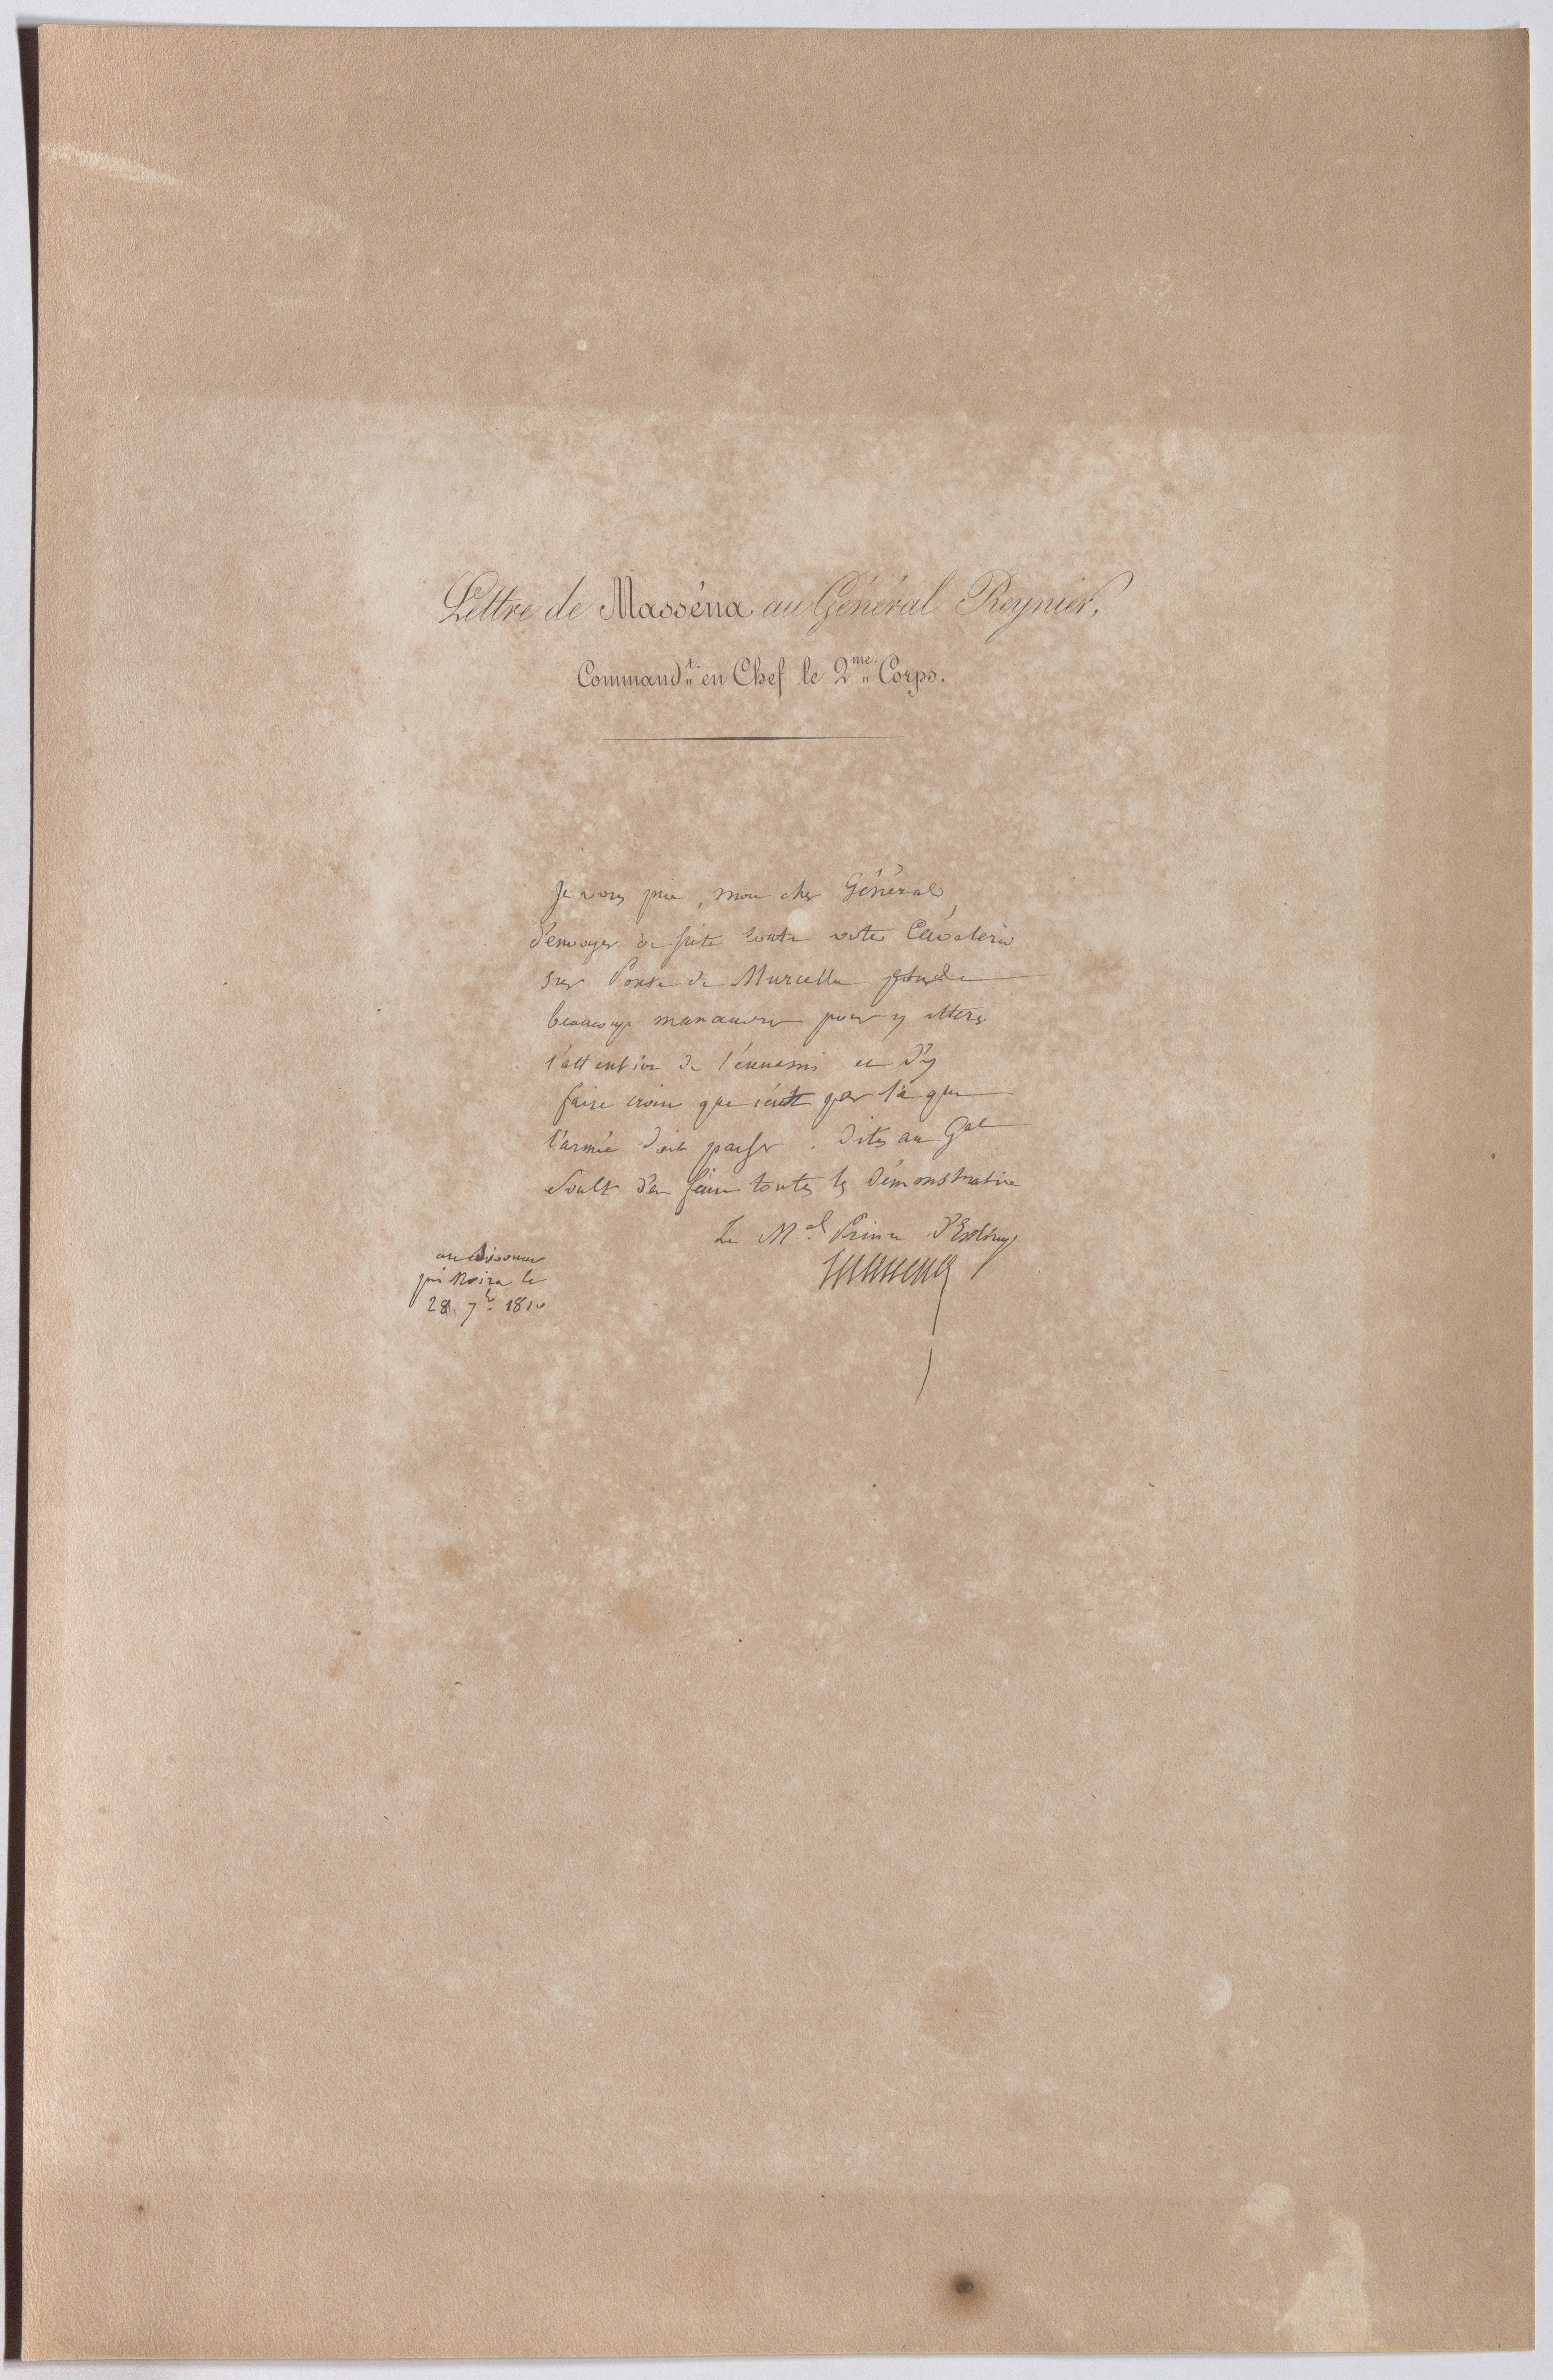 Lettre de Masséna au Général Reynier,
Command.t en Chef le 2.me Corps.
Je vous prie, mon cher Général,
d'envoyer de suite toute votre Cavalerie
sur Ponte de Murcella
beaucoup manœuvrer pour y attirer
l'attention de l'ennemi et d'y
faire croire que c'est par là que
l'armée doit passer. Dites au Gal
Soult d'en faire toutes les démonstrations
Le M.al Prince d'Essling
Massena
au Bivouac
près Moira le
28. 7.b 1810